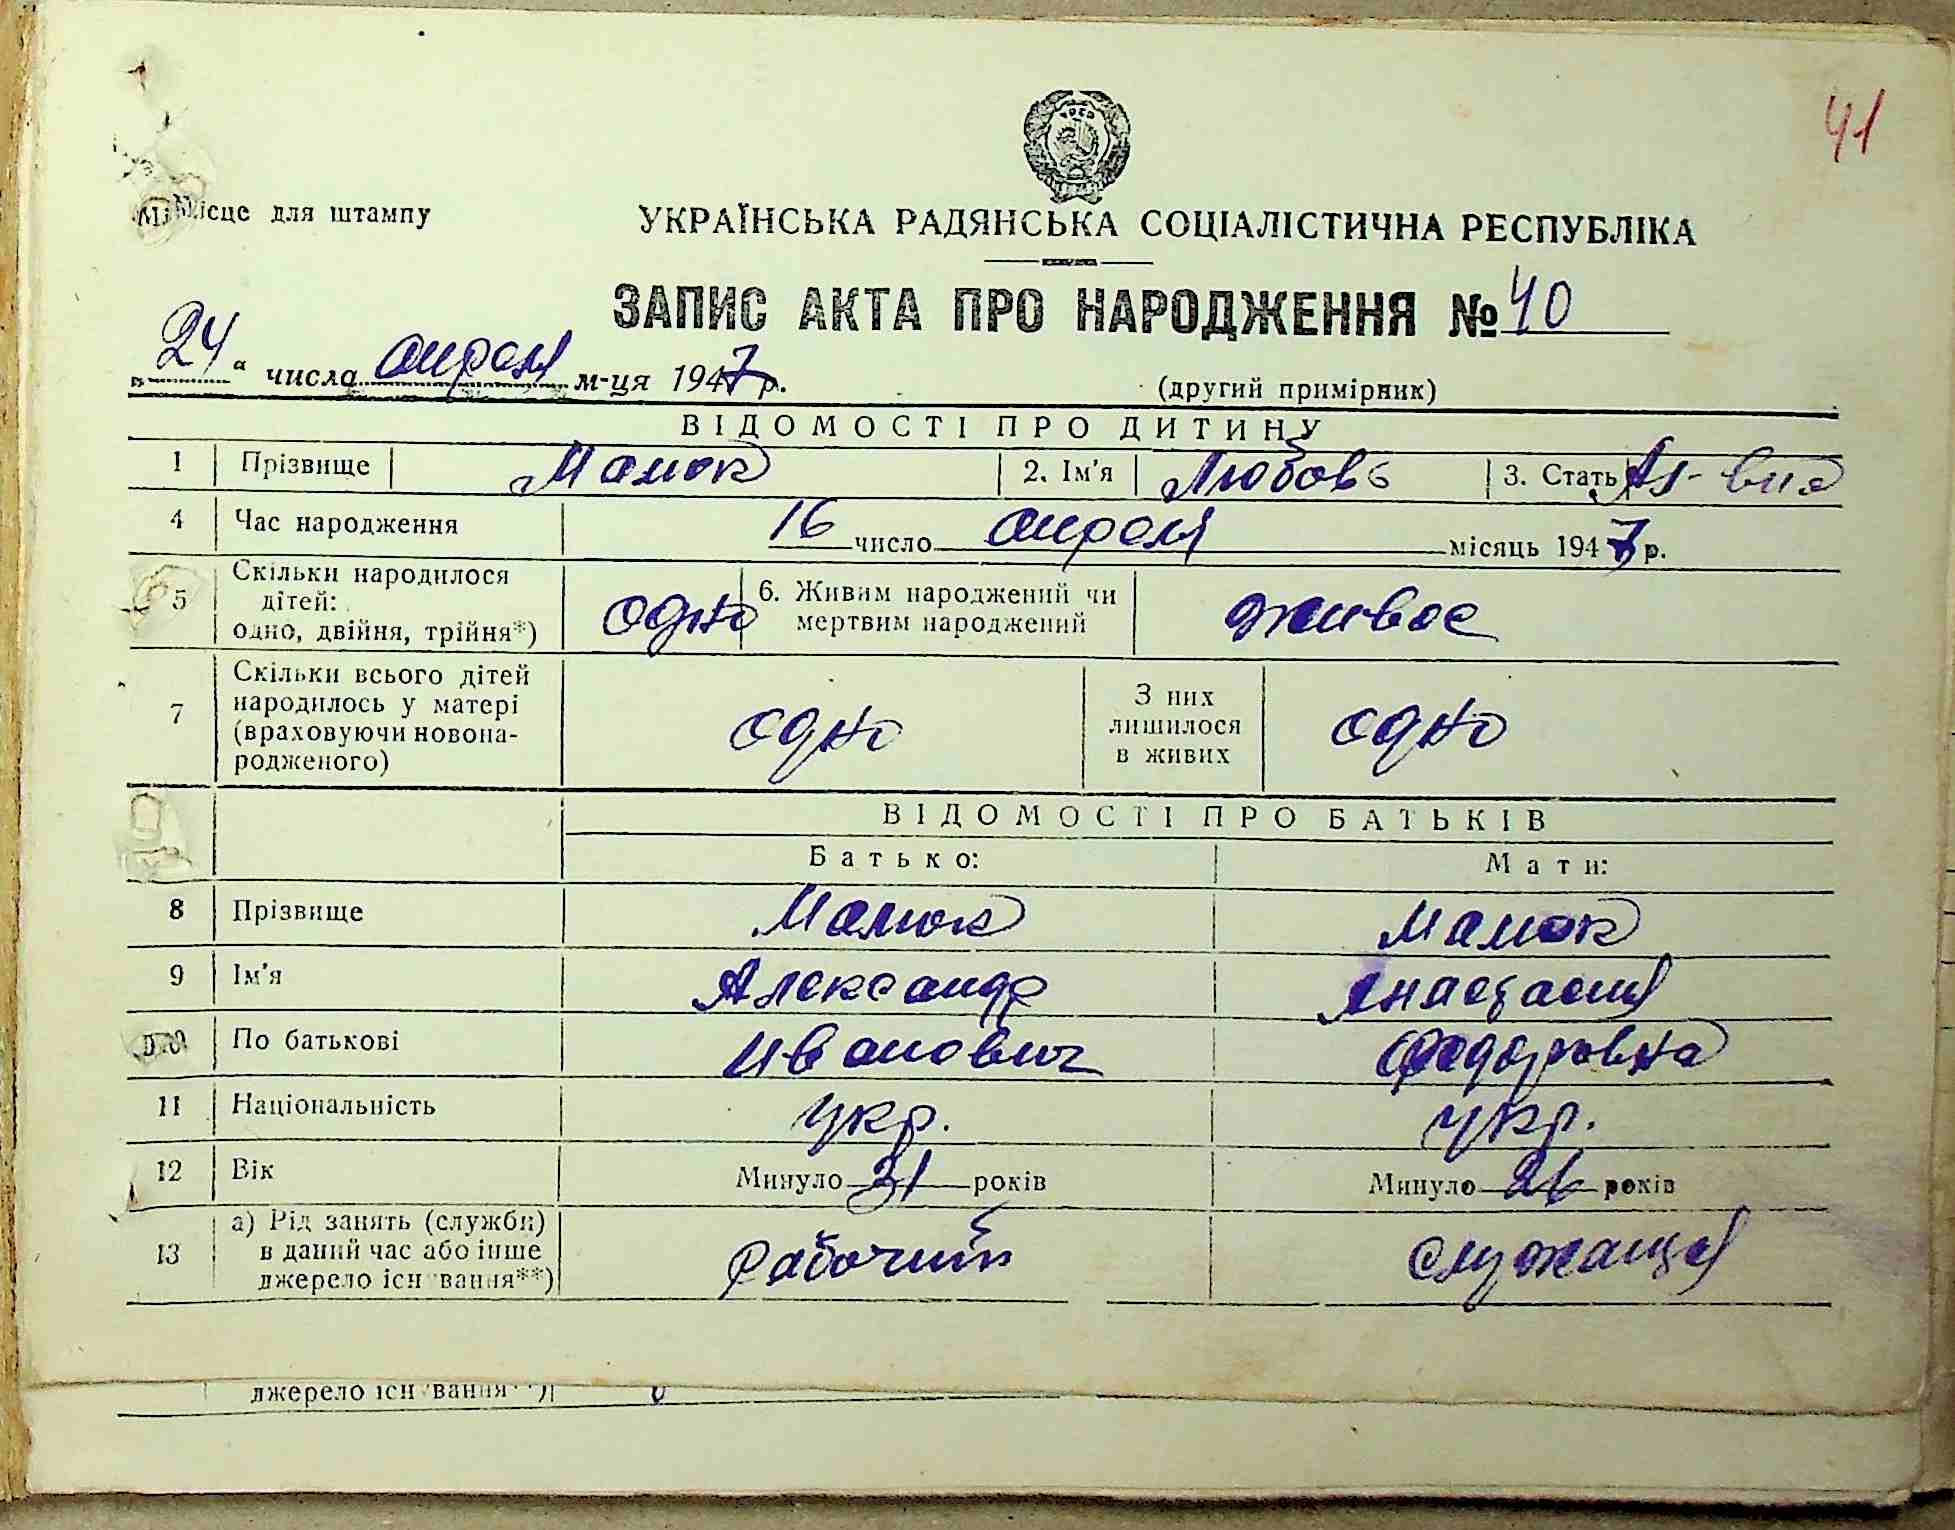 41
Місце для штампу
УКРАЇНСЬКА РАДЯНСЬКА СОЦІАЛІСТИЧНА РЕСПУБЛІКА
ЗАПИС АКТА ПРО НАРОДЖЕННЯ № 40
„24“ числа апреля м-ця 1947 р.
(другий примірник)
ВІДОМОСТІ ПРО ДИТИНУ
1 Прізвище Мамок 2. Ім'я Любовь 3. Стать
4 Час народження 16 число апреля місяць 1947 р.
5 Скільки народилося дітей: одно, двійня, трійня*) одно 6. Живим народжений чи мертвим народжений живое
7 Скільки всього дітей народилось у матері (враховуючи новонародженого) одно З них лишилося в живих одно
ВІДОМОСТІ ПРО БАТЬКІВ
Батько: Мати:
8 Прізвище Мамок Мамок
9 Ім'я Александр Анастасия
10 По батькові Иванович Федоровна
11 Національність укр. укр.
12 Вік Минуло 31 років Минуло 26 років
13 а) Рід занять (служби) в даний час або інше джерело існування**) рабочий служащая
джерело існування**)